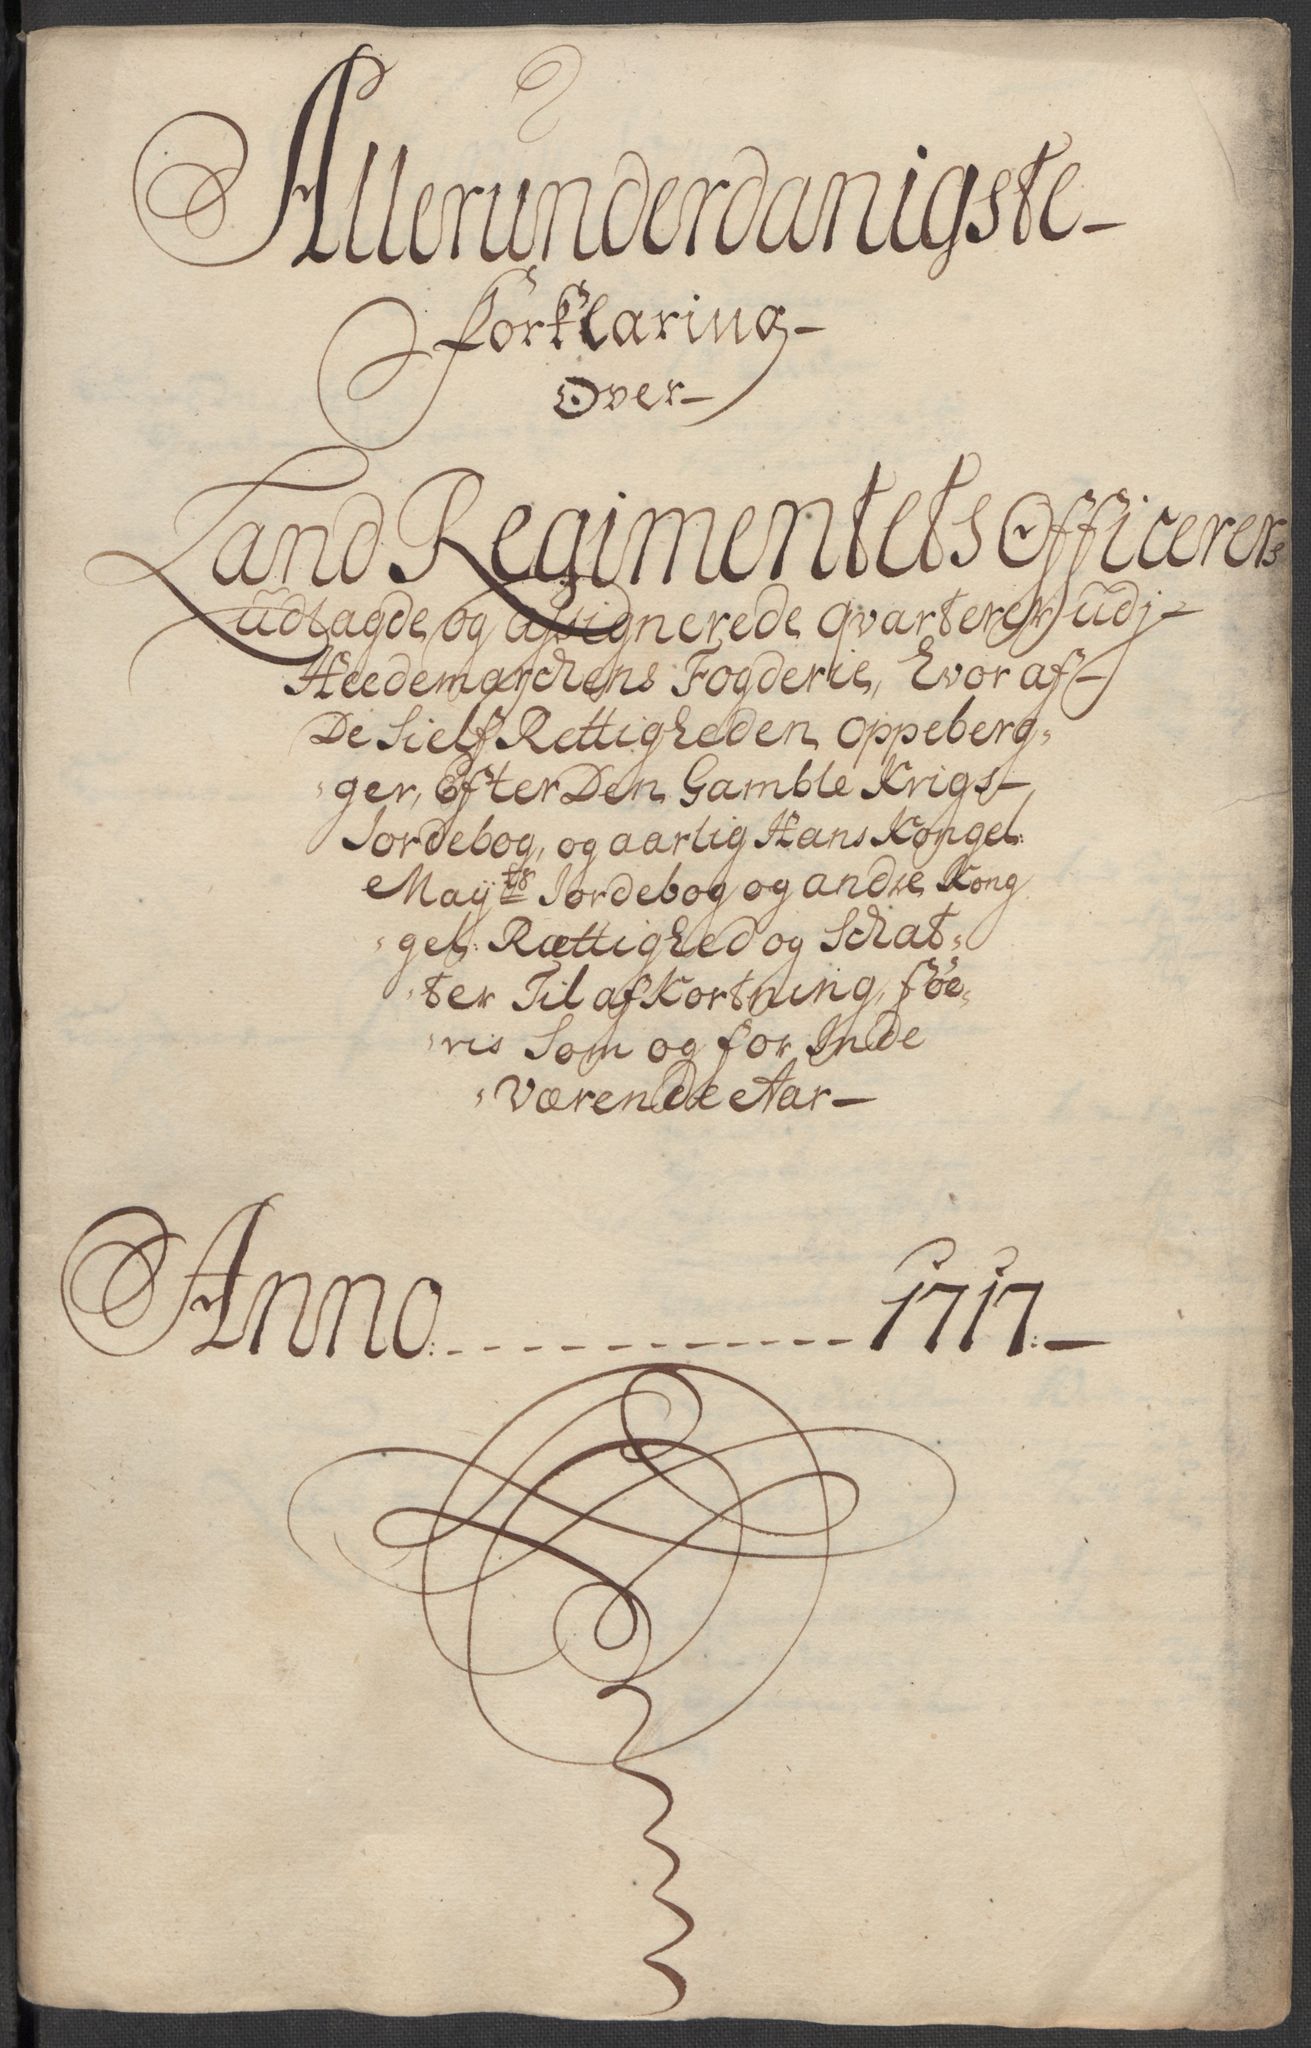 Allerunderdanigste
forklaring
Over
Land Regimentets Officerers
udtagde og assignerede qvarterer udj
Heedemarchens Fogderie, hvoraf
De Sielf Rettigheden oppeberg-
ger, Efter Den Gamble Krigs
Jordebog, og aarlig Hans Kongel:
Mayts Jordebog og andre Kong
gel: Rættighed og Schat-
ter Til afkortning, føe-
ris Som og for Inde
Værende Aar
Anno 1717.